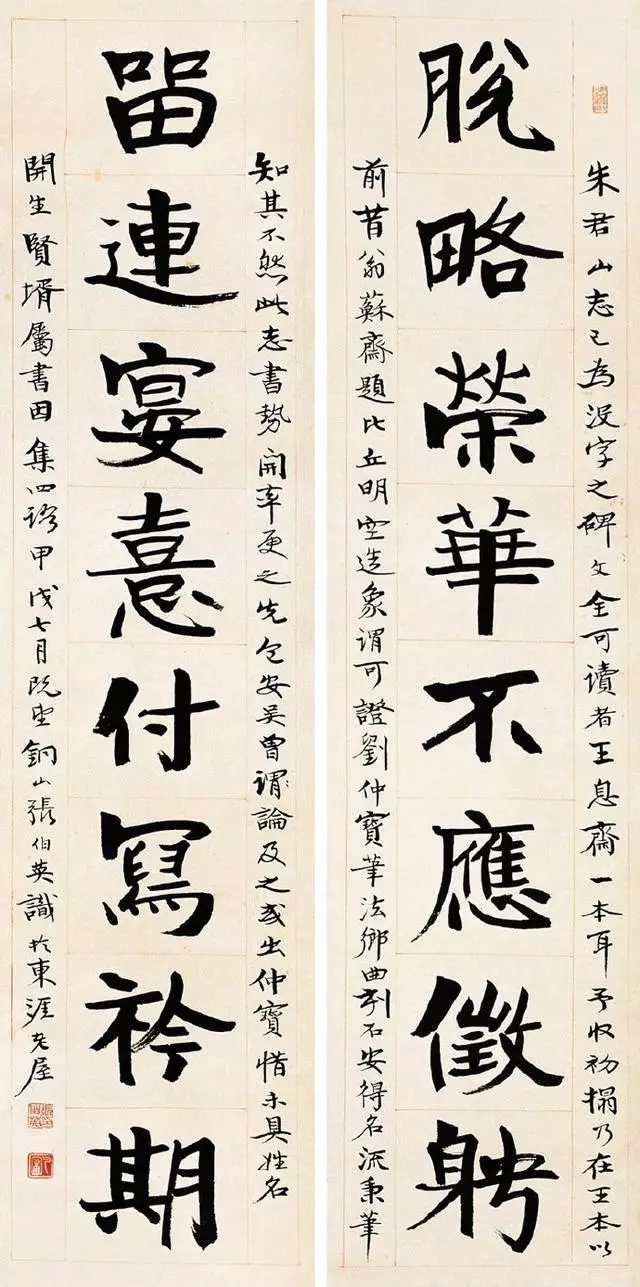 朱君山志已為没字之碑文全可讀者王息齋一本耳予收初搨乃在王本以
脫略榮華不應徵聘
前昔翁蘇齋題比丘明空造象謂可證劉仲寶筆法鄉曲刻石安得名流秉筆
知其不然此志書勢開率更之先包安吴曾謂論及之或出仲寶惜未具姓名
留連宴憙付寫衿期
開生賢壻屬書因集四語甲戌七月既望銅山張伯英識於東涯老屋